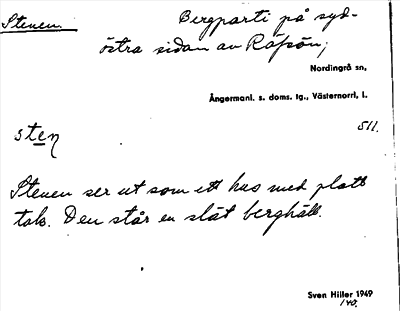 Stenen. Bergparti på syd-
östra sidan av Räfsön;
Nordingrå sn,
Ångermanl. s. doms. lg., Västernorrl, l.
sten
511.
Stenen ser ut som ett hus med platt
tak. Den står en slät berghäll.
Sven Hiller 1949
140.